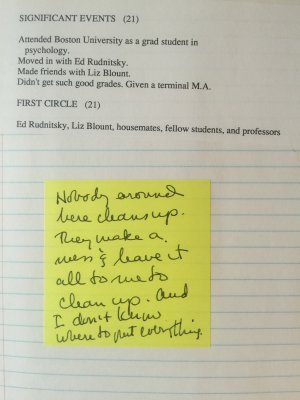 SIGNIFICANT EVENTS (21)
Attended Boston University as a grad student in
psychology.
Moved in with Ed Rudnitsky.
Made friends with Liz Blount.
Didn't get such good grades. Given a terminal M.A.
FIRST CIRCLE (21)
Ed Rudnitsky, Liz Blount, housemates, fellow students, and professors
Nobody around
here cleans up.
They make a
mess & leave it
all to me to
clean up. And
I don't know
where to put everything.